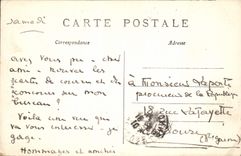 Samedi
CARTE POSTALE
Correspondance
Adresse
avez vous pu - cher
ami - trouver les
carte de course et de
concours sur mon
bureau ?
Voilà une vue qui
vous intéresse - je
gage.
Hommages et amitiés
à Monsieur Laporte
procureur de la République
18 rue Lafayette